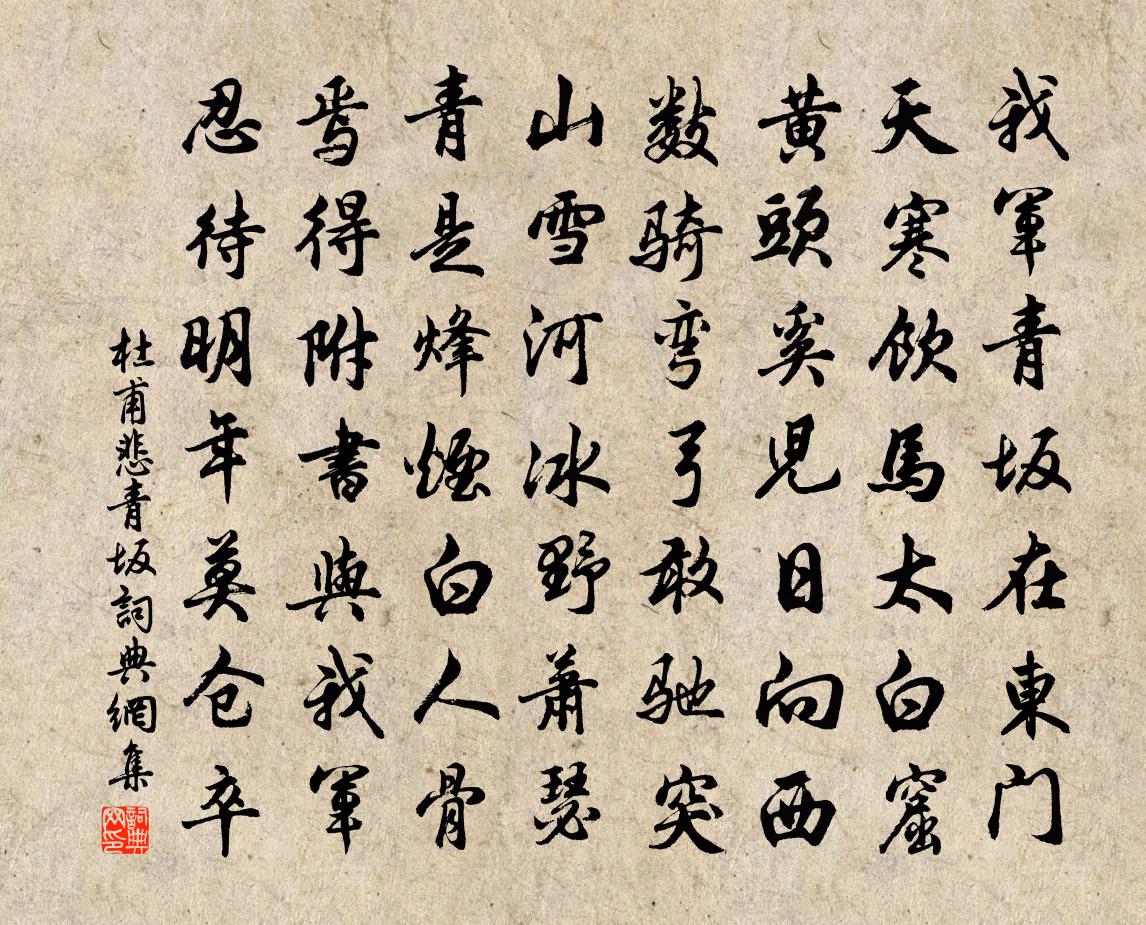 我軍青坂在東門
天寒飲馬太白窟
黄頭奚兒日向西
數騎彎弓敢馳突
山雪河冰野蕭瑟
青是烽煙白人骨
焉得附書與我軍
忍待明年莫仓卒
杜甫悲青坂詞典網集
詞典网印